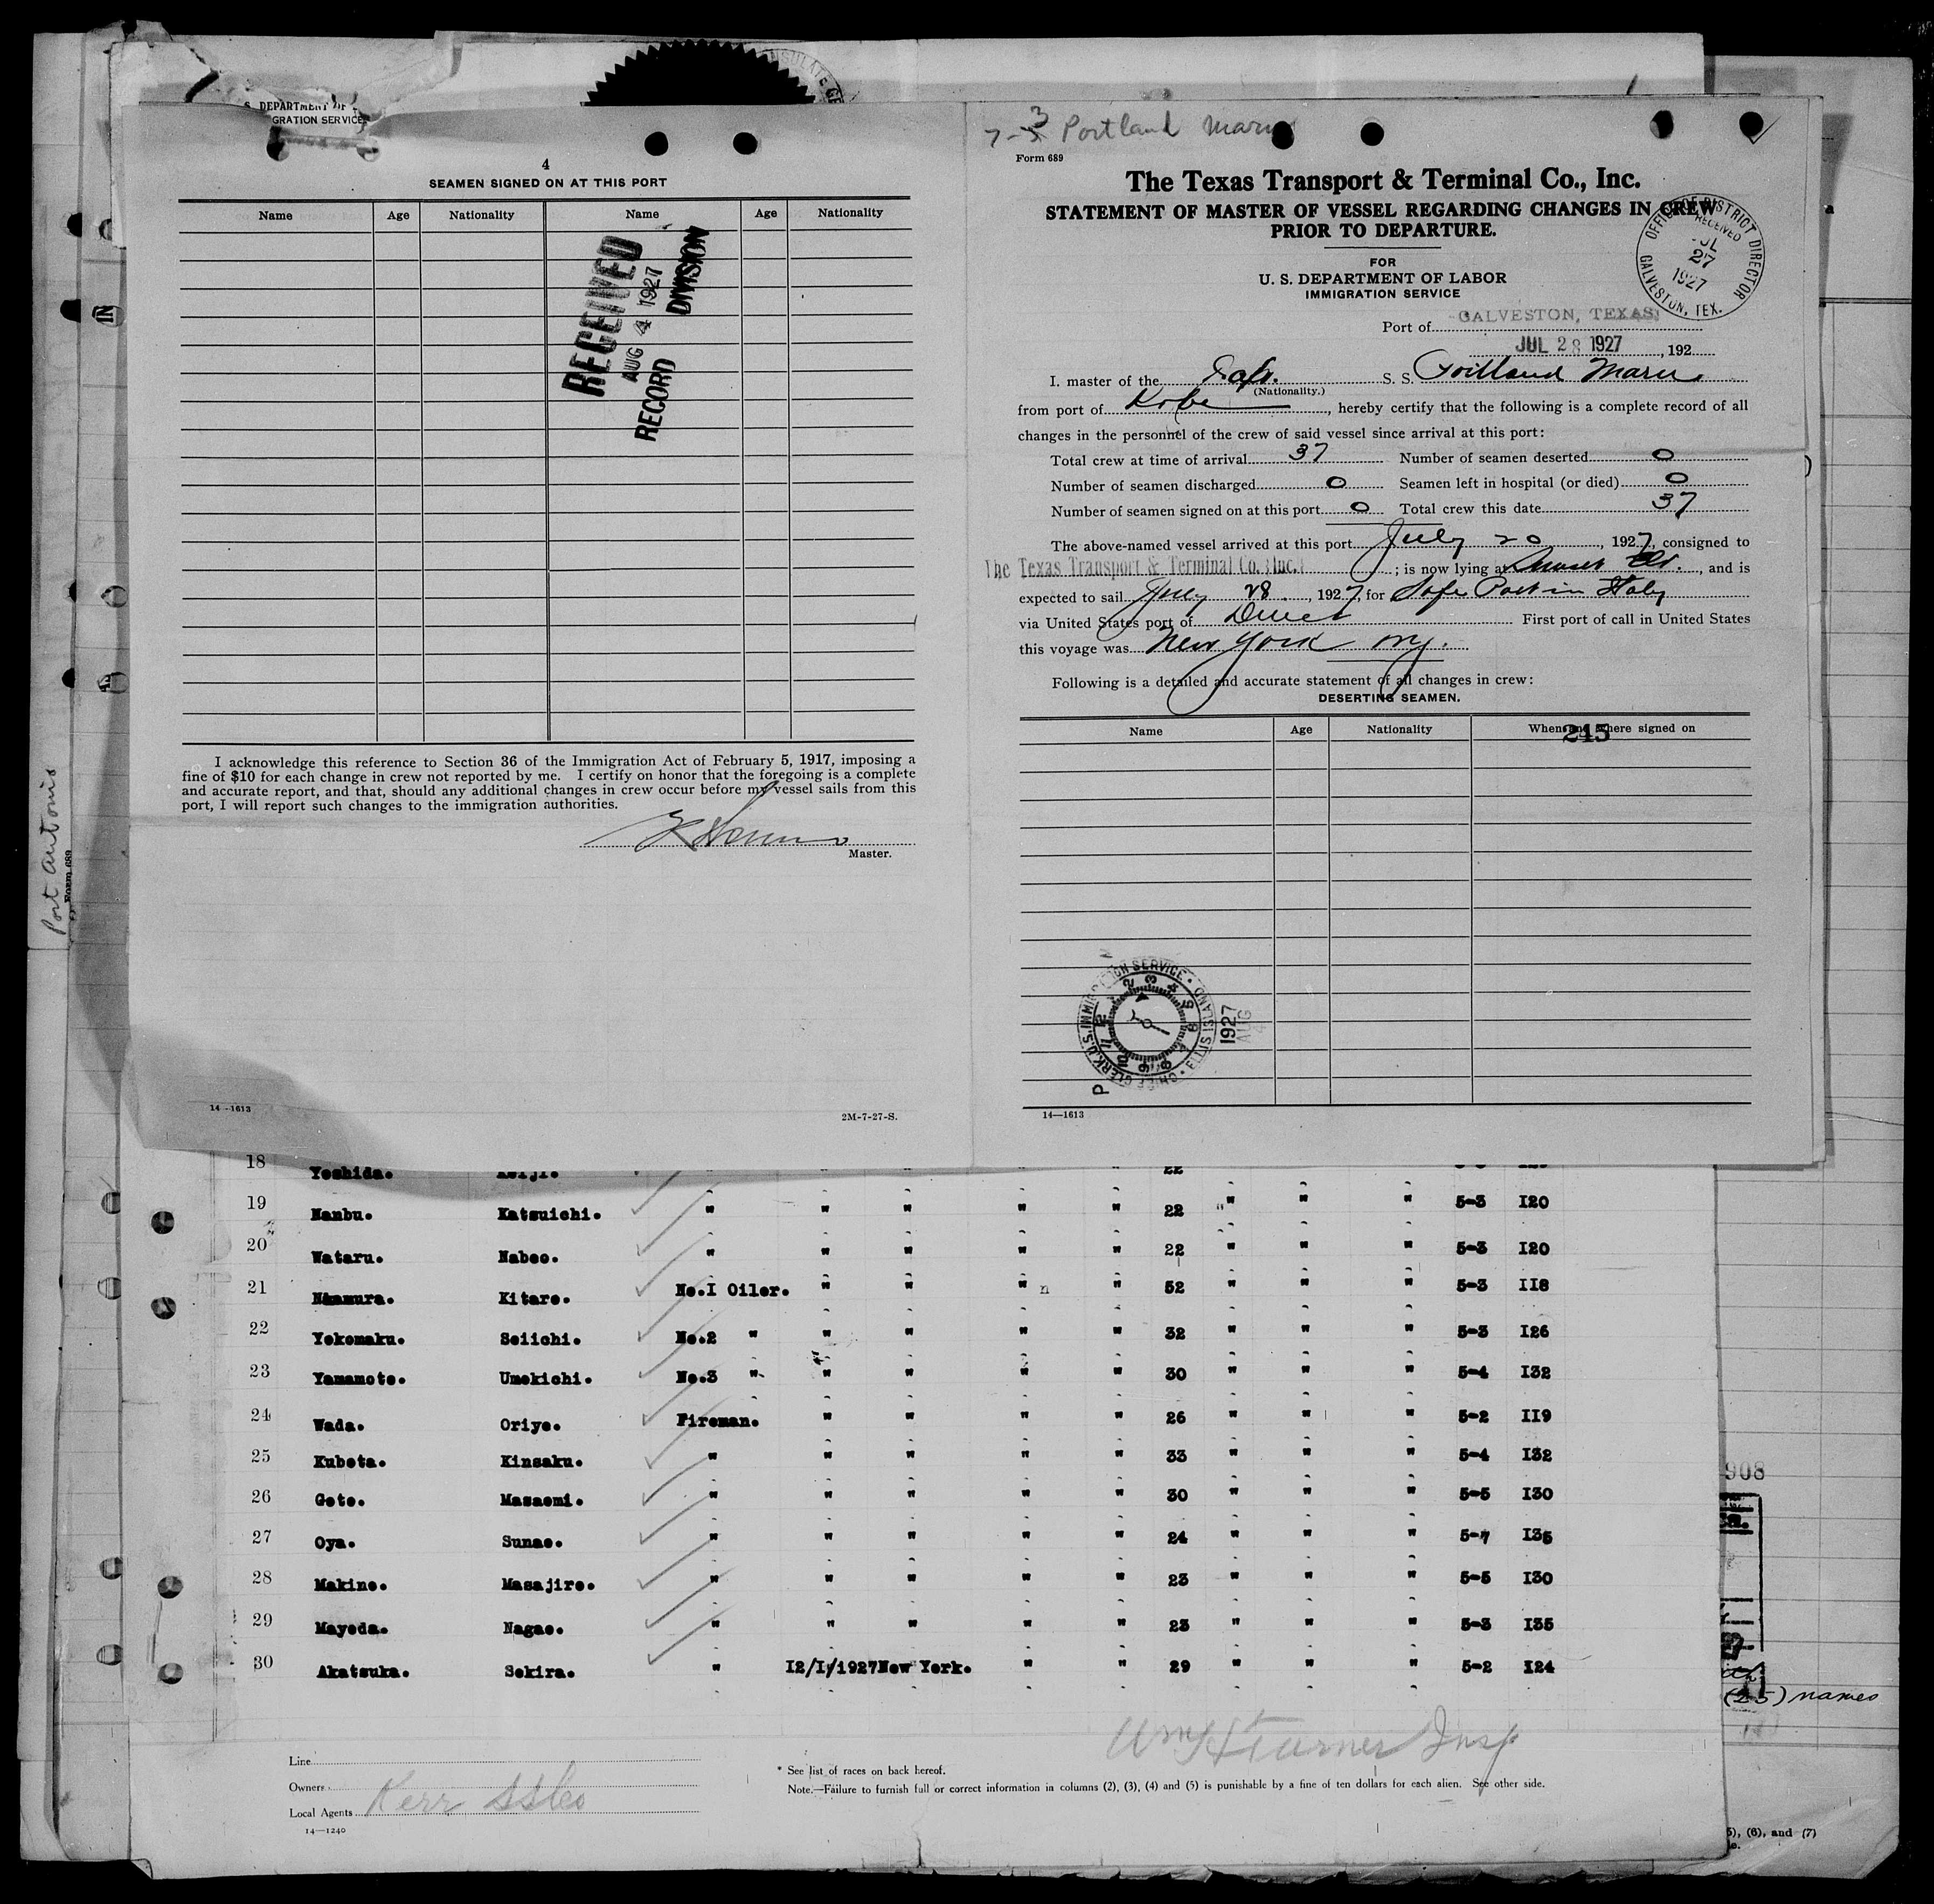 S. DEPARTMENT OF
GRATION SERVICE
7-3 Portland Maru
4
SEAMEN SIGNED ON AT THIS PORT
Name Age Nationality Name Age Nationality
RECEIVED
AUG 4 1927
RECORD DIVISION
I acknowledge this reference to Section 36 of the Immigration Act of February 5, 1917, imposing a
fine of $10 for each change in crew not reported by me. I certify on honor that the foregoing is a complete
and accurate report, and that, should any additional changes in crew occur before my vessel sails from this
port, I will report such changes to the immigration authorities.
Master.
14-1613 2M-7-27-S.
Form 689
The Texas Transport & Terminal Co., Inc.
STATEMENT OF MASTER OF VESSEL REGARDING CHANGES IN CREW
PRIOR TO DEPARTURE.
FOR
U. S. DEPARTMENT OF LABOR
IMMIGRATION SERVICE
OFFICE OF DISTRICT DIRECTOR
RECEIVED
JUL
27
1927
GALVESTON, TEX.
Port of GALVESTON, TEXAS
JUL 28 1927, 192
I. master of the Jap. S. S. Portland Maru
(Nationality.)
from port of Kobe, hereby certify that the following is a complete record of all
changes in the personnel of the crew of said vessel since arrival at this port:
Total crew at time of arrival 37 Number of seamen deserted 0
Number of seamen discharged 0 Seamen left in hospital (or died) 0
Number of seamen signed on at this port 0 Total crew this date 37
The above-named vessel arrived at this port July 20, 1927, consigned to
The Texas Transport & Terminal Co. (Inc.); is now lying at, and is
expected to sail July 28, 1927, for Safe Port in Italy
via United States port of Direct First port of call in United States
this voyage was New York NY.
Following is a detailed and accurate statement of all changes in crew:
DESERTING SEAMEN.
Name Age Nationality When and where signed on
245
CHIEF CLERK. U.S. IMMIGRATION SERVICE • ELLIS ISLAND
1927
AUG
4
P
14—1613
Port Antonio
Form 689
18 Yoshida. 22
19 Nanbu. Katsuichi. " " " " " 22 " " " 5-3 I20
20 Wataru. Naboo. " " " " " 22 " " " 5-3 I20
21 Kitaro. No.I Oiler. " " " " 52 " " " 5-3 II8
22 Yokomaku. Seiichi. No.2 " " " " " 32 " " " 5-3 I26
23 Yamamoto. Umekichi. No.3 " " " " " 30 " " " 5-4 I32
24 Wada. Oriyo. Fireman. " " " " 26 " " " 5-2 II9
25 Kubota. Kinsaku. " " " " " 33 " " " 5-4 I32
26 Goto. Masaomi. " " " " " 30 " " " 5-5 I30
27 Oya. Sunao. " " " " " 24 " " " 5-7 I35
28 Makino. Masajiro. " " " " " 23 " " " 5-5 I30
29 Mayeda. Nagao. " " " " " 23 " " " 5-3 I35
30 Akatsuka. Sekira. " I2/I/1927 New York. " " 29 " " " 5-2 I24
908
(25) names
Wm H Turner Insp
Line
Owners
Local Agents Kerr SSCo
14—1240
* See list of races on back hereof.
Note.—Failure to furnish full or correct information in columns (2), (3), (4) and (5) is punishable by a fine of ten dollars for each alien. See other side.
(6), and (7)